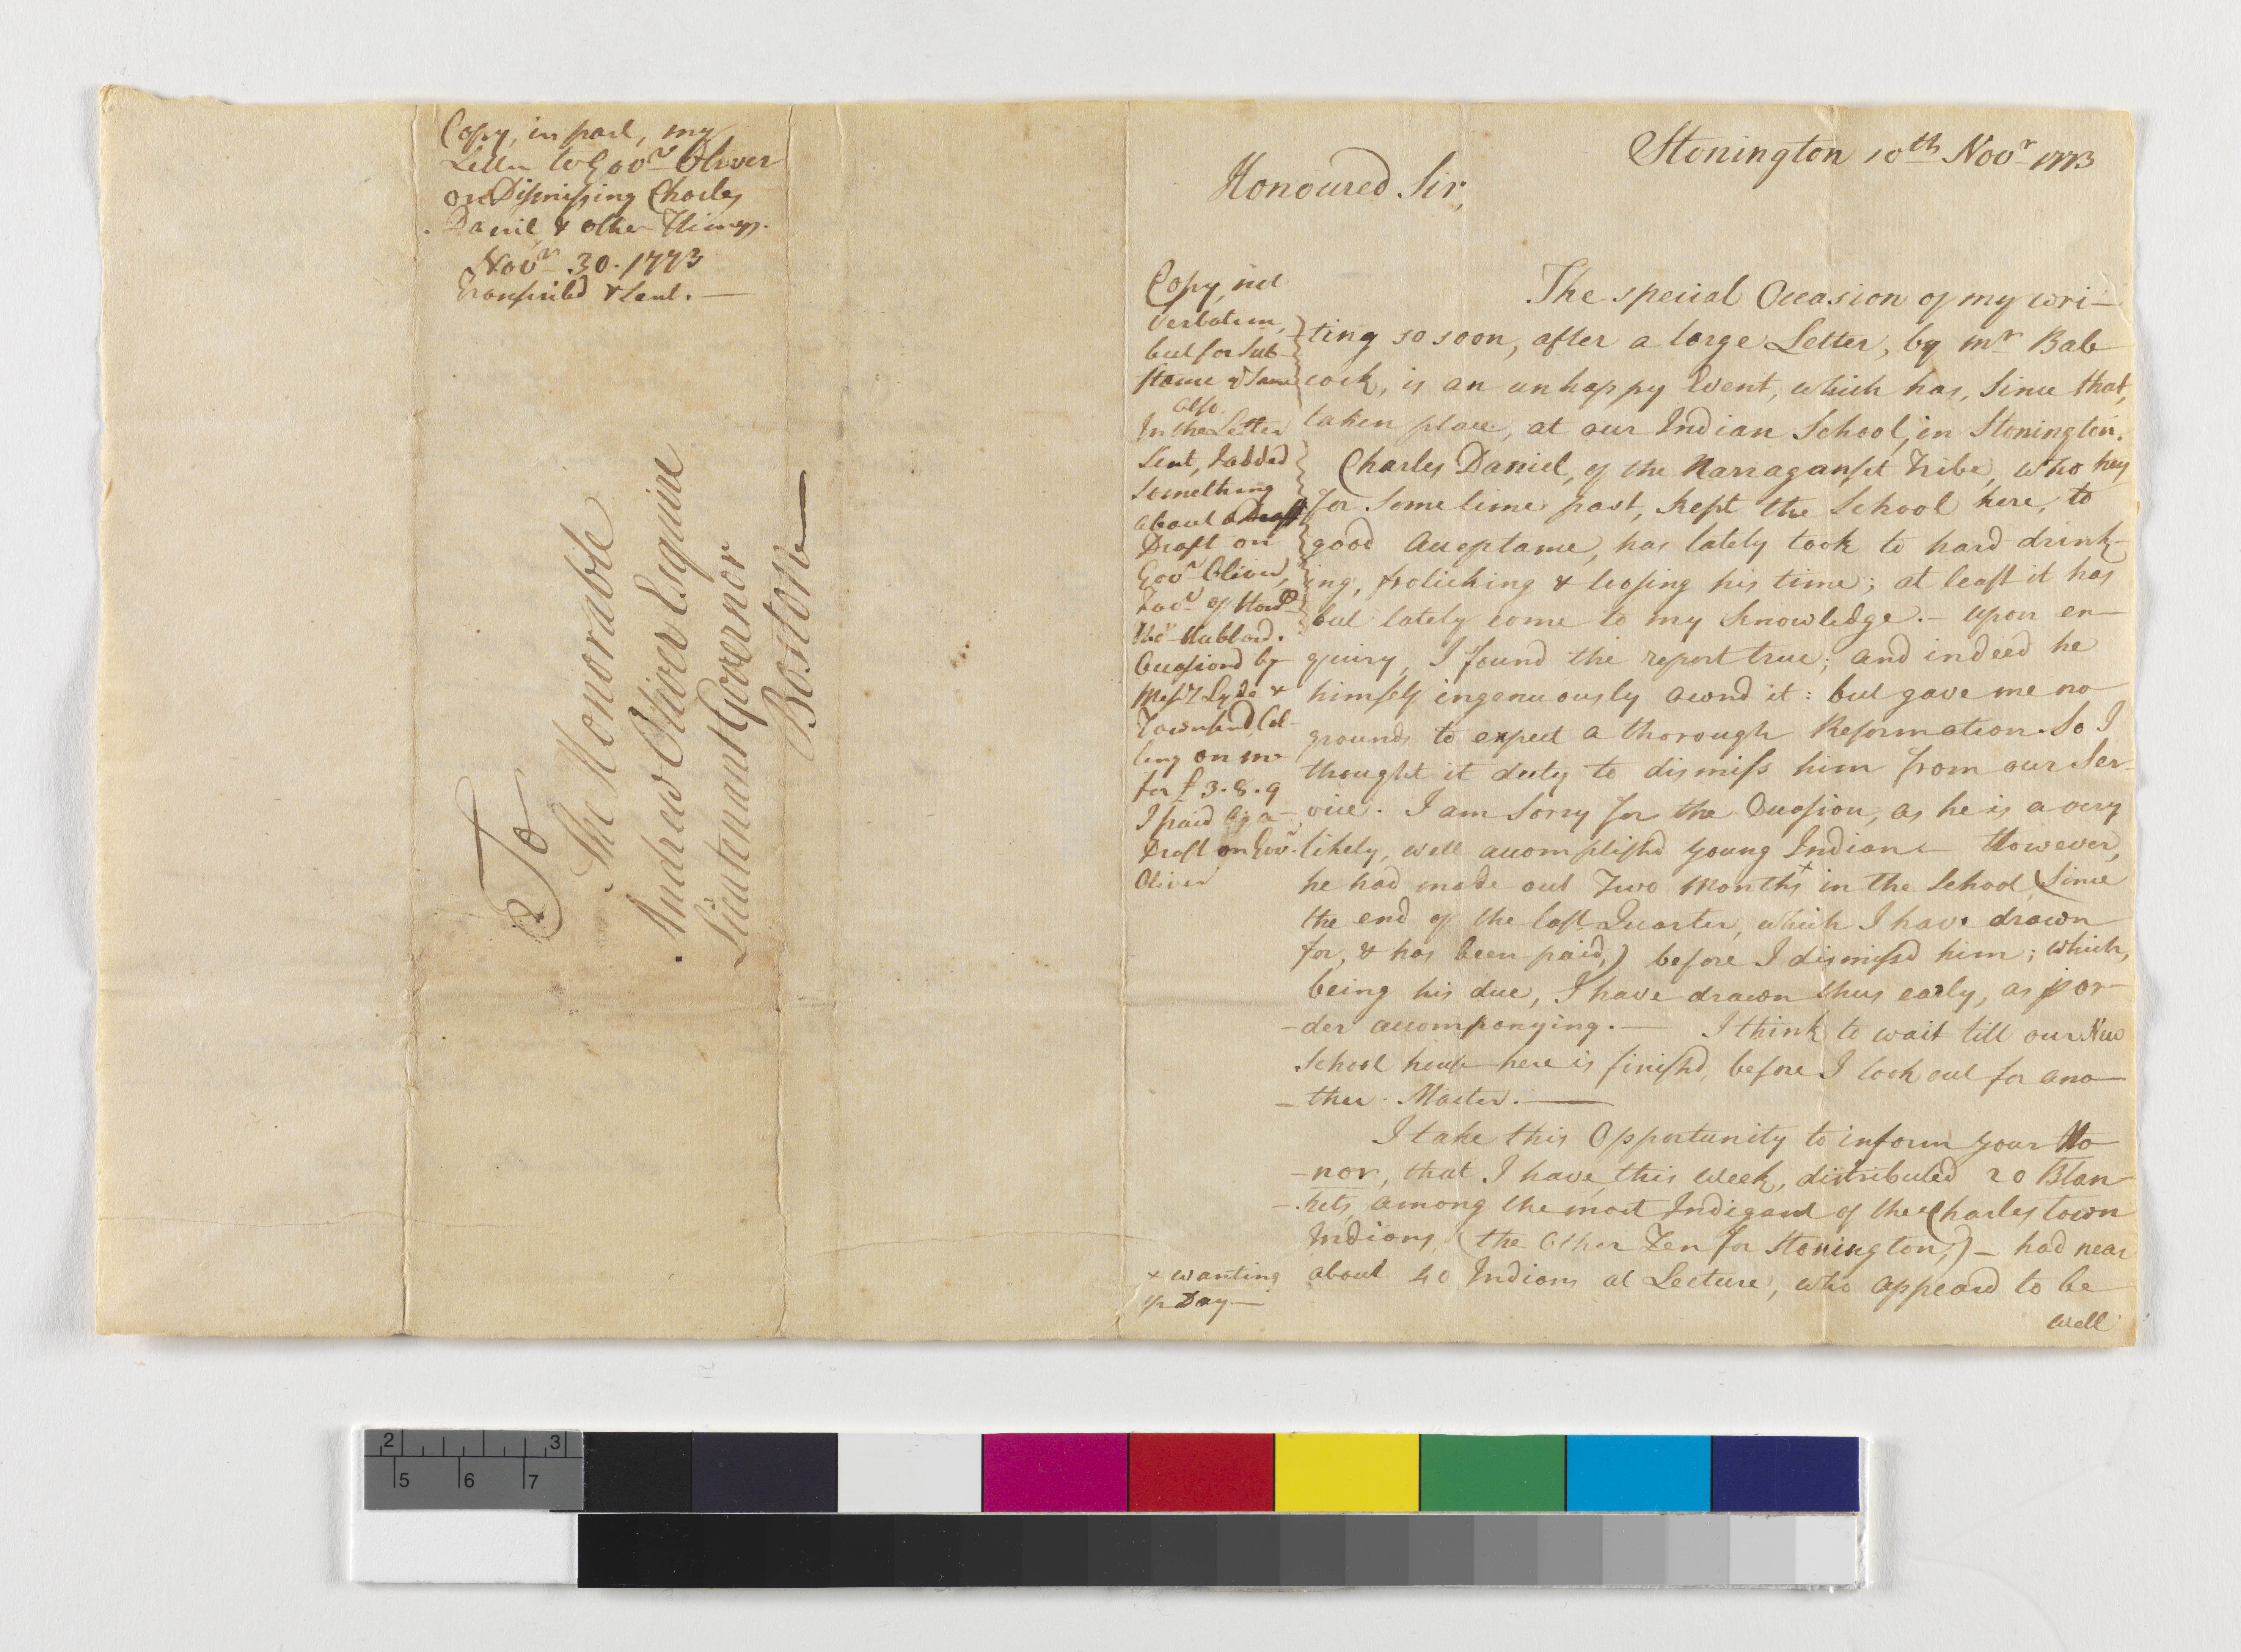 Copy, in part, my
Letter to Govr Oliver
on Dismissing Charles
Daniel, & other Things.
Novr 30. 1773
Transcribed & Sent. —
To
The Honorable
Andrew Oliver Esquire
Lieutenant Governor
Boston
Stonington 10th Novr 1773
Honoured Sir,
The special Occasion of my wri-
ting so soon, after a large Letter, by Mr Bab
cock, is an unhappy Event, which has, Since that,
taken place, at our Indian School, in Stonington.
Charles Daniel, of the Narraganset Tribe, who has
for Some time past, kept the School here, to
good Acceptance, has lately took to hard drink-
ing, frolicking & loosing his time; at least it has
but lately come to my knowledge. – upon en-
quiry, I found the report true; and indeed he
himself ingenuously ownd it: but gave me no
grounds to expect a thorough Reformation. So I
thought it duty to dismiss him from our Ser-
vice. I am Sorry for the Occasion, as he is a very
likely, well accomplishd young Indian – However,
he had made out Two Months + in the School (Since
the end of the last Quarter, which I have drawn
for, & has been paid,) before I dismissd him; which,
being his due, I have drawn thus early, as p or-
-der accompanying. — I think to wait till our New
School house here is finishd, before I look out for ano-
-ther Master. —
I take this Opportunity to inform your Ho
-nor, that I have, this Week, distributed 20 Blan-
-kets, among the most Indigent of the Charlestown
Indians, (the Other Ten for Stonington,) – had near
about 40 Indians at Lecture, who appeard to be
well
Copy, not
Verbatim,
but for Sub-
stance & Same
also.
In the Letter
Sent, I added
Something
about a Draft
Draft on
Govr Oliver,
Favr of Honle
Thos Hubbard.
Occasiond by
Messrs Lyde &
Townsend Cal-
ling on me
for £3.8.9
I paid by a
Draft on Govr
Oliver
+ wanting
a Day —